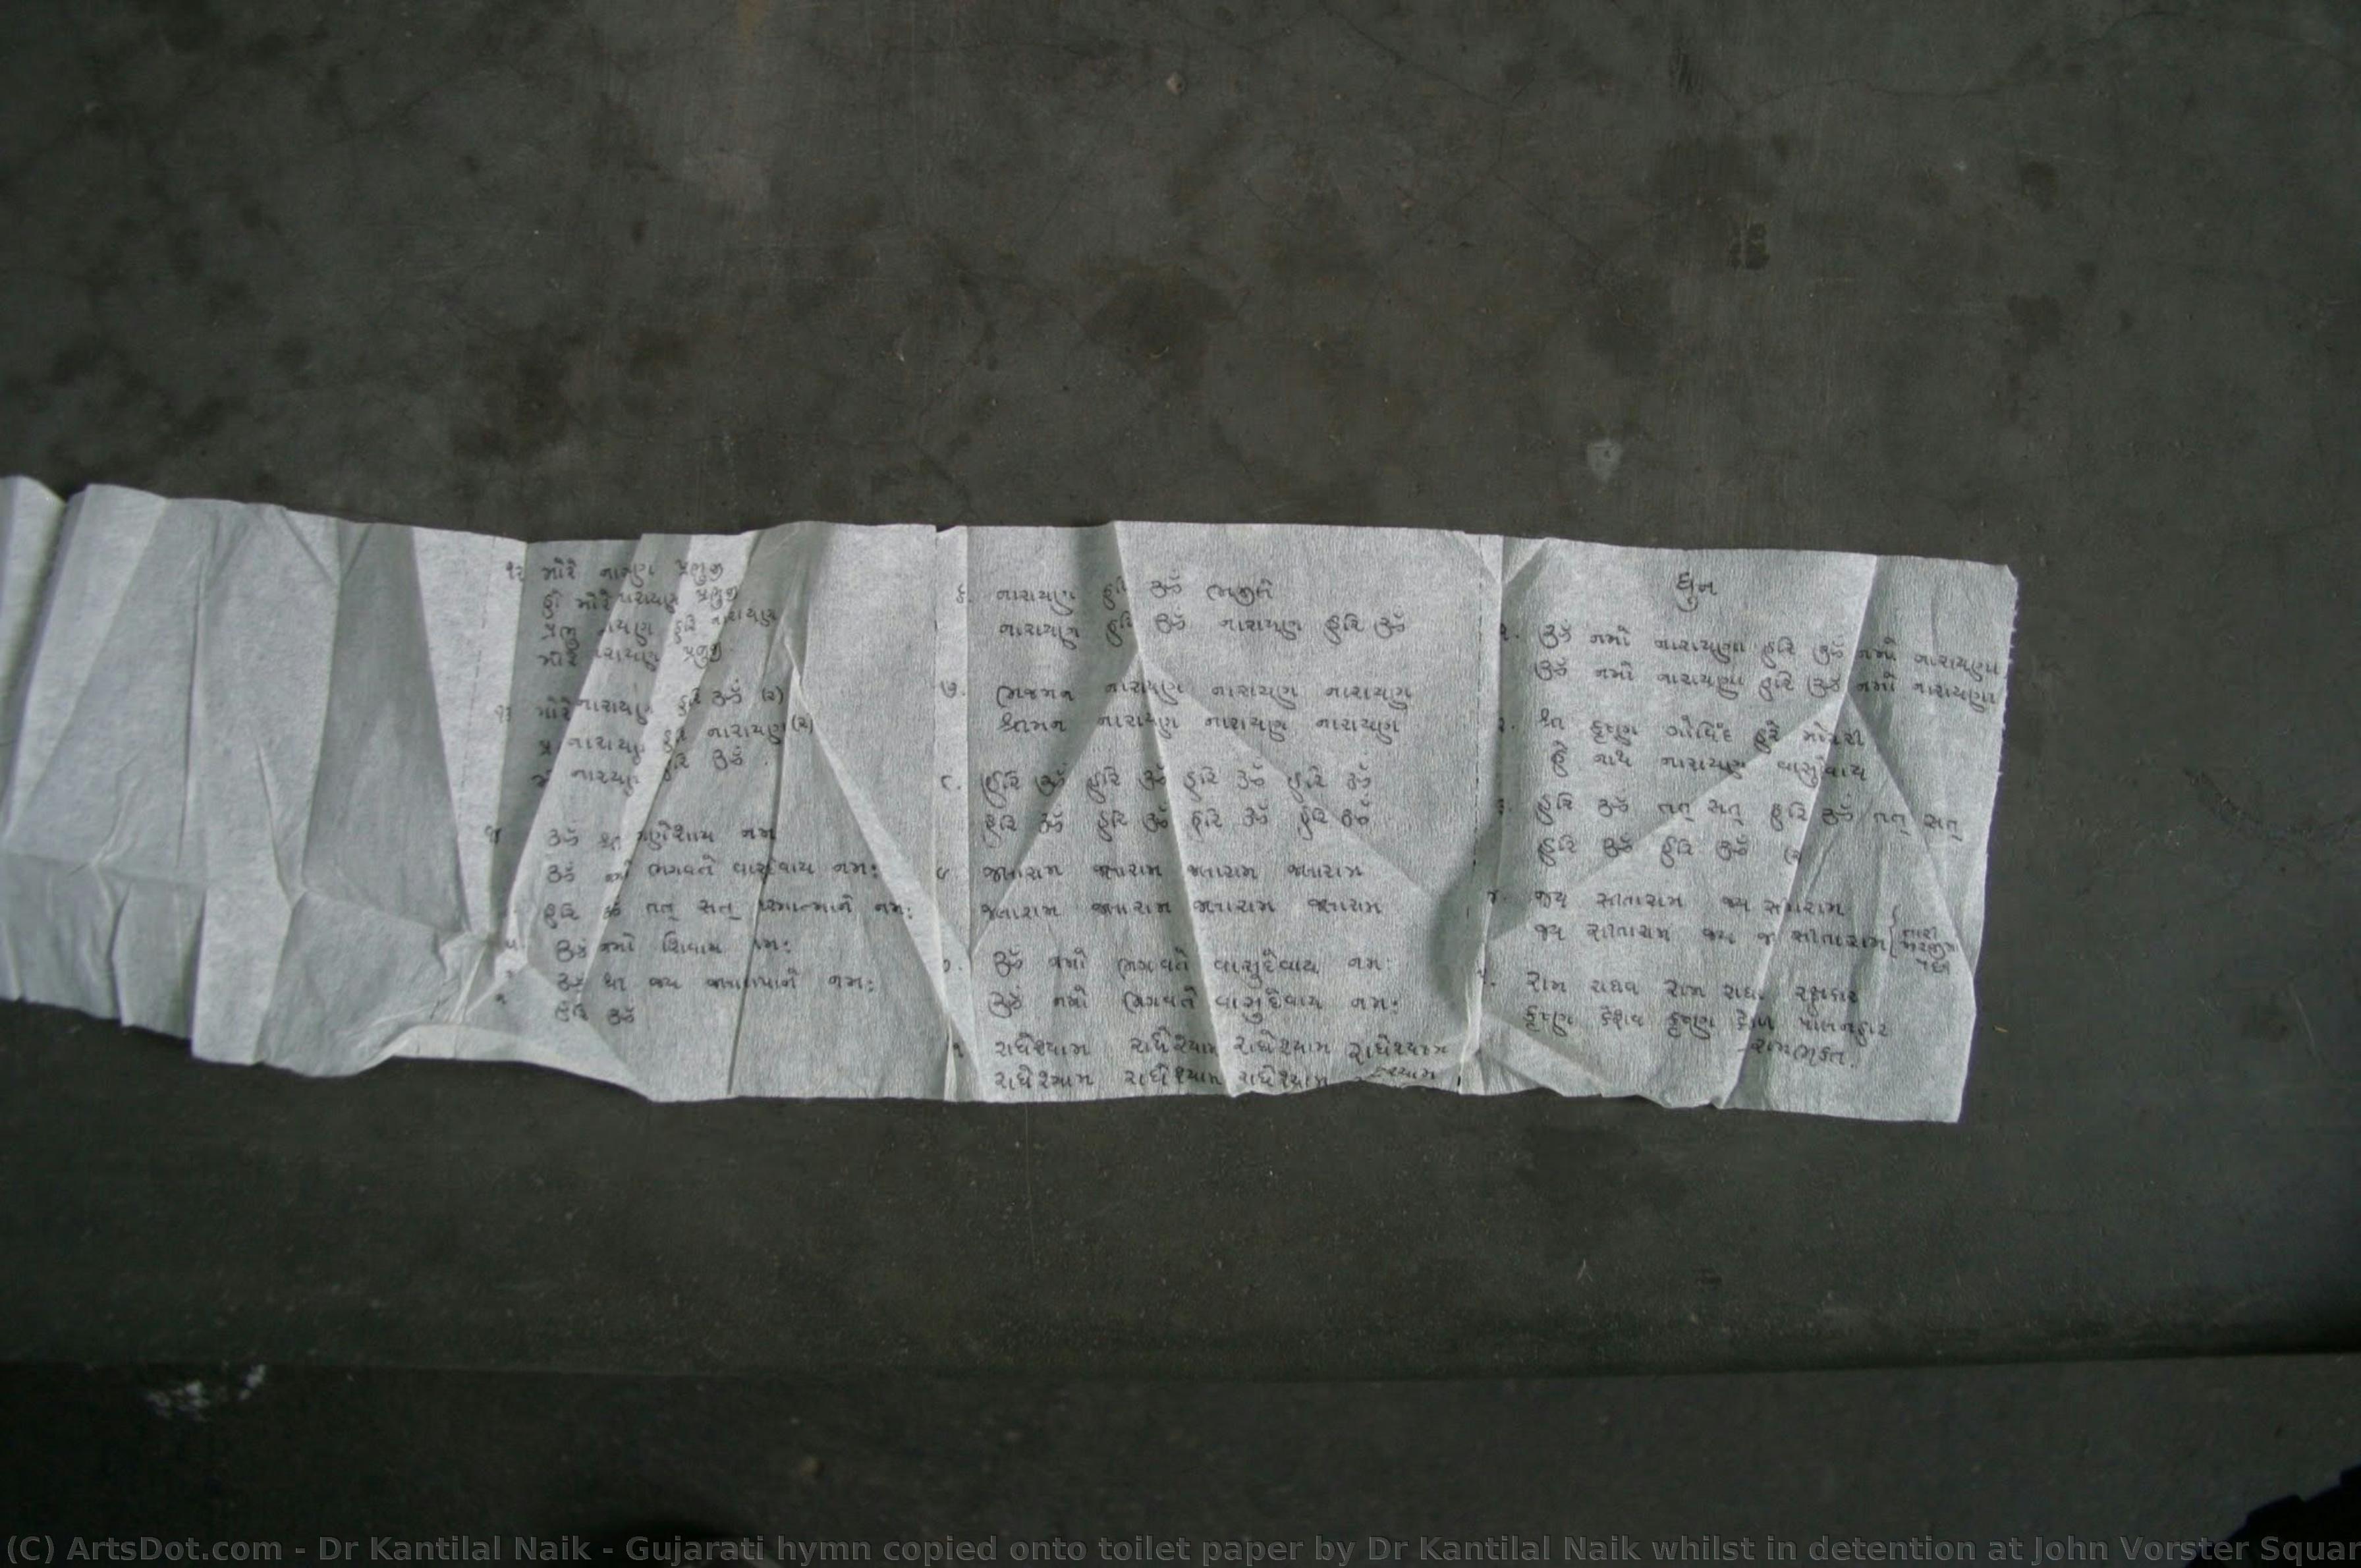 ધુન
૧. ૐ નમો નારાયણા હરિ ૐ નમો નારાયણા
ૐ નમો નારાયણા હરિ ૐ નમો નારાયણા
૨. શ્રી કૃષ્ણ ગોવિંદ હરે મોરારી
હે નાથ નારાયણ વાસુદેવાય
૩. હરિ ૐ તત્ સત્ હરિ ૐ તત્ સત્
હરિ ૐ હરિ ૐ (૨
૪. જય સીતારામ જય સીતારામ
જય સીતારામ જય જય સીતારામ
૫. રામ રાઘવ રામ રાઘવ રક્ષાકાર
કૃષ્ણ કેશવ કૃષ્ણ કેશવ પાલનહાર
- રામભક્ત.
૬. નારાયણ હરિ ૐ ભજીલે
નારાયણ હરિ ૐ નારાયણ હરિ ૐ
૭. ભજમન નારાયણ નારાયણ નારાયણ
શ્રીમન નારાયણ નારાયણ નારાયણ
૮. હરિ ૐ હરિ ૐ હરિ ૐ હરિ ૐ
હરિ ૐ હરિ ૐ હરિ ૐ હરિ ૐ
૯ જલારામ જલારામ જલારામ જલારામ
જલારામ જલારામ જલારામ જલારામ
૦. ૐ નમો ભગવતે વાસુદેવાય નમ:
ૐ નમો ભગવતે વાસુદેવાય નમ:
૧ રાધેશ્યામ રાધેશ્યામ રાધેશ્યામ રાધેશ્યામ
રાધેશ્યામ રાધેશ્યામ રાધેશ્યામ
૧૨ મોરે નારાયણ પ્રભુજી
હો મોરે નારાયણ પ્રભુજી
પ્રભુ નારાયણ હરિ નારાયણ
મોરે નારાયણ પ્રભુજી
૧૩ મોરે નારાયણ હરિ ૐ (૨)
નારાયણ હરિ નારાયણ (૨)
નારાયણ હરિ ૐ
૧૪ ૐ શ્રી ગણેશાય નમ
ૐ નમો ભગવતે વાસુદેવાય નમ:
હરિ ૐ તત્ સત્ પરમાત્માને નમ:
ૐ નમો શિવાય નમ:
ૐ શ્રી જય નમ:
હરિ ૐ
(C) ArtsDot.com - Dr Kantilal Naik - Gujarati hymn copied onto toilet paper by Dr Kantilal Naik whilst in detention at John Vorster Squar